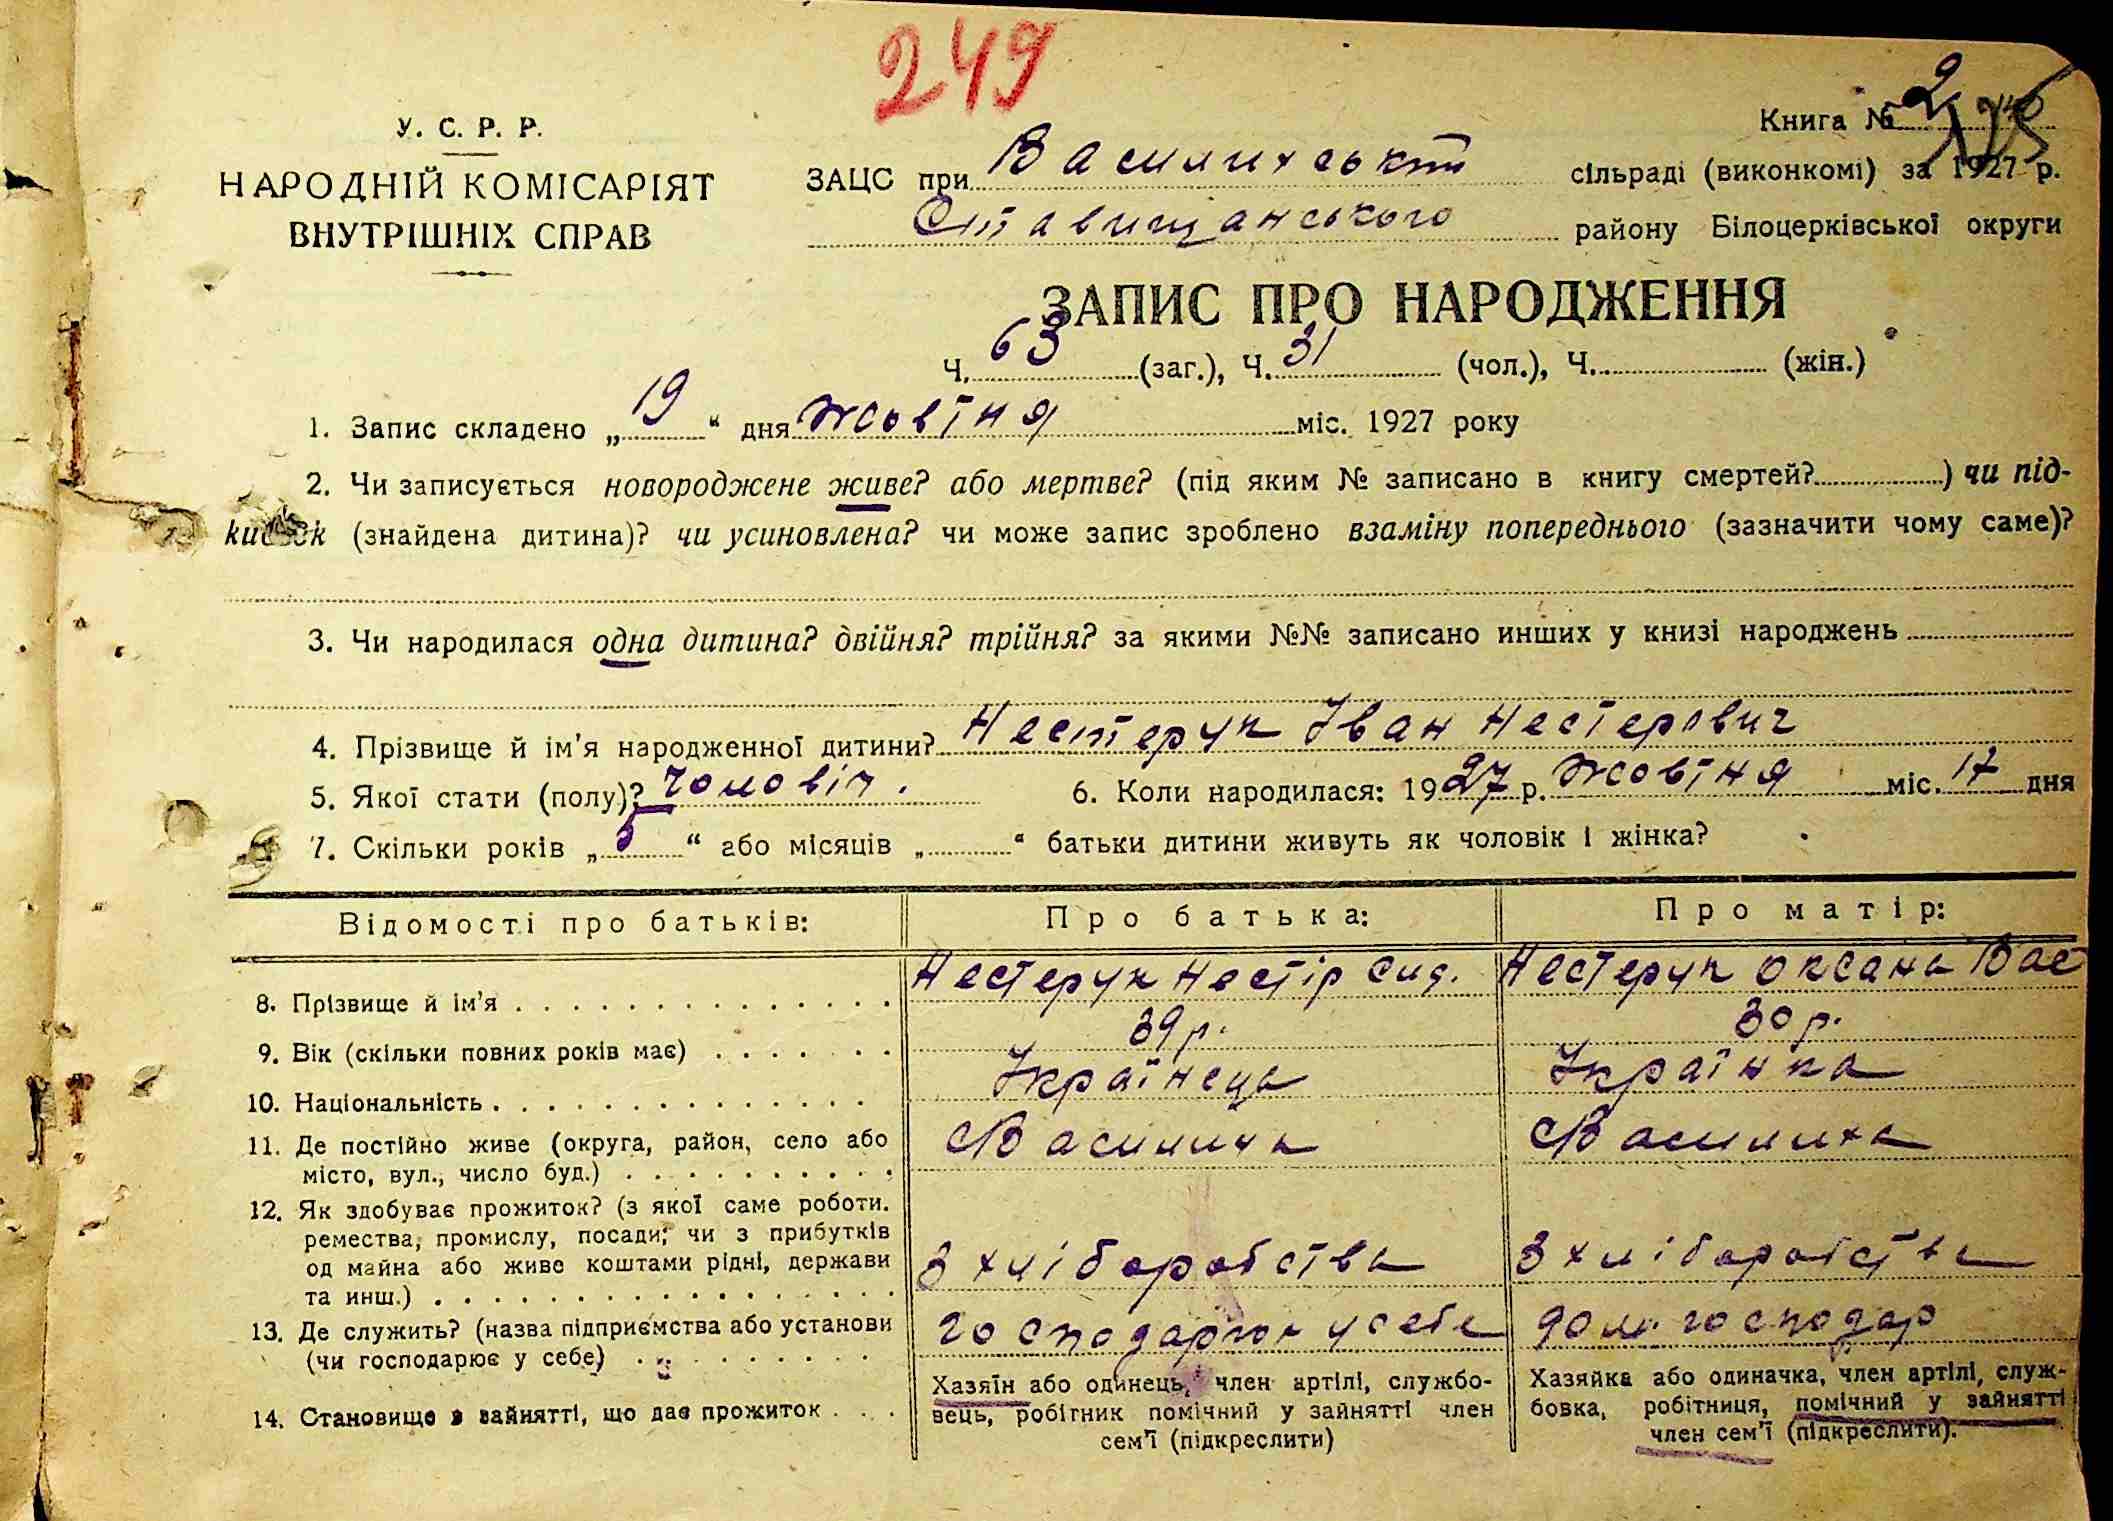 249
У. С. Р. Р.
НАРОДНІЙ КОМІСАРІЯТ
ВНУТРІШНІХ СПРАВ
Книга № 2
ЗАЦС при Василихській сільраді (виконкомі) за 1927 р.
Ставищанського району Білоцерківської округи
ЗАПИС ПРО НАРОДЖЕННЯ
Ч. 63 (заг.), Ч. 31 (чол.), Ч. (жін.)
1. Запис складено „19“ дня жовтня міс. 1927 року
2. Чи записується новороджене живе? або мертве? (під яким № записано в книгу смертей? ) чи під-
кидьок (знайдена дитина)? чи усиновлена? чи може запис зроблено взаміну попереднього (зазначити чому саме)?
3. Чи народилася одна дитина? двійня? трійня? за якими №№ записано инших у книзі народжень
4. Прізвище й ім'я народженної дитини? Нестерук Іван Нестерович
5. Якої стати (полу)? чоловіч. 6. Коли народилася: 1927 р. жовтня міс. 17 дня
7. Скільки років „5“ або місяців „ “ батьки дитини живуть як чоловік і жінка?
Відомості про батьків: Про батька: Про матір:
8. Прізвище й ім'я Нестерук Нестір Сид. Нестерук Оксана Вас
9. Вік (скільки повних років має) 39 р. 30 р.
10. Національність Українець Українка
11. Де постійно живе (округа, район, село або
місто, вул., число буд.) Василиха Василиха
12. Як здобуває прожиток? (з якої саме роботи.
ремества, промислу, посади; чи з прибутків
од майна або живе коштами рідні, держави
та инш.) З хліборобства З хліборобства
13. Де служить? (назва підприємства або установи
(чи господарює у себе) господарює у себе дом. господар
14. Становище в зайнятті, що дає прожиток
Хазяїн або одинець, член артілі, службо-
вець, робітник помічний у зайнятті член
сем'ї (підкреслити)
Хазяйка або одиначка, член артілі, служ-
бовка, робітниця, помічний у зайнятті
член сем'ї (підкреслити).